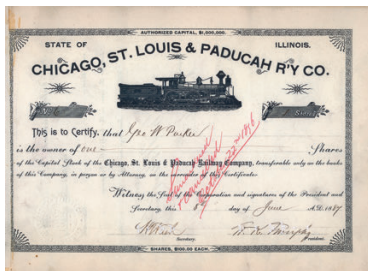 AUTHORIZED CAPITAL, $1,000,000.
STATE OF ILLINOIS.
CHICAGO, ST. LOUIS & PADUCAH R'Y CO.
This is to Certify, that Geo W Parker
is the owner of one Shares
of the Capital Stock of the Chicago, St. Louis & Paducah Railway Company, transferable only on the books
of this Company, in person or by Attorney, on the surrender of this Certificate.
Witness the Seal of the Corporation and signatures of the President and
Secretary, this 8 day of June A.D. 1887
Secretary. President.
SHARES, $100.00 EACH.